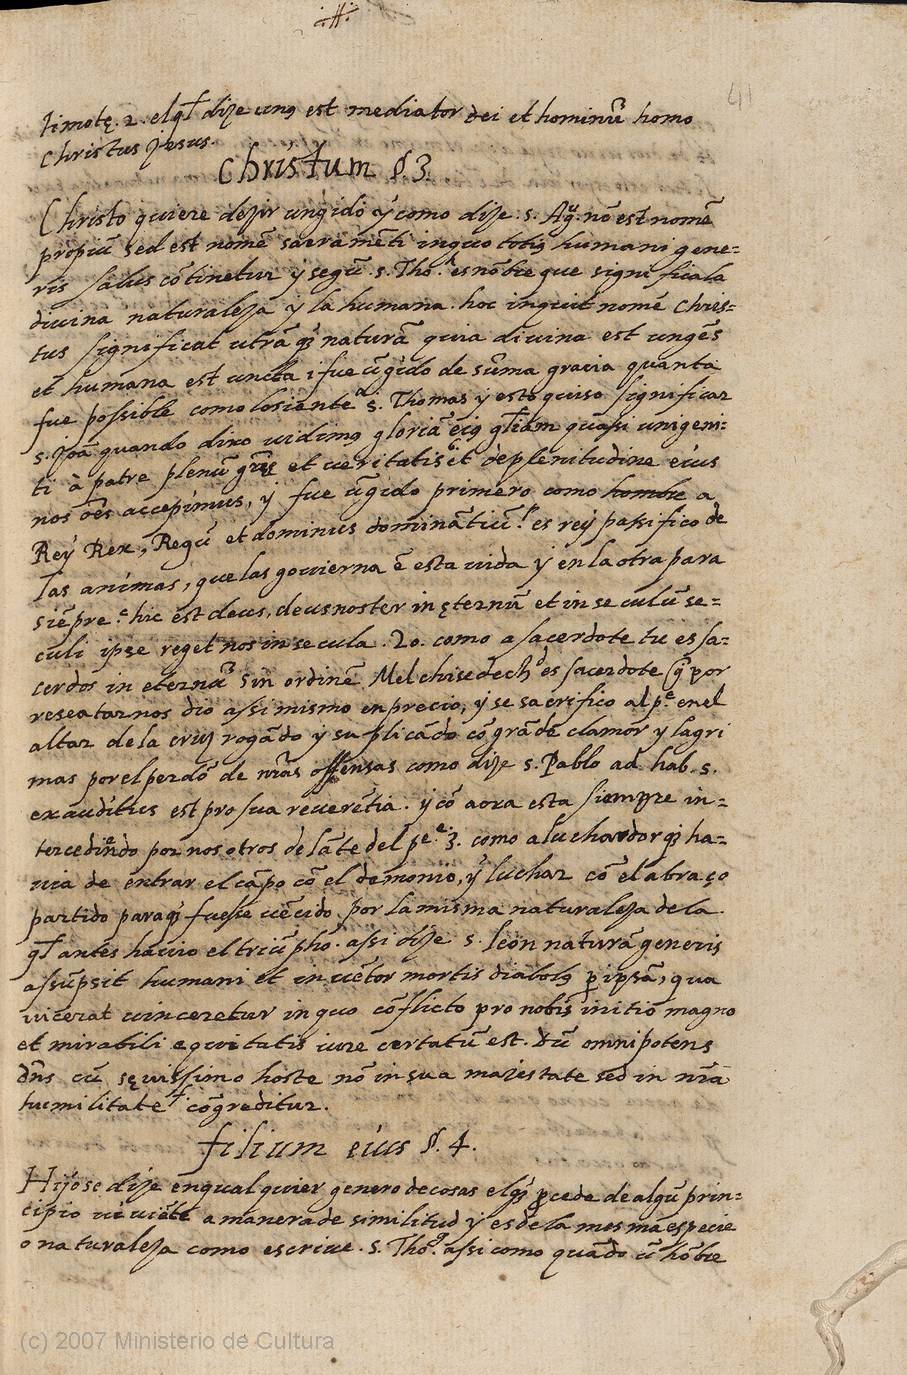 .#.
41
timotę. 2. el q̃l dize unꝰ est mediator dei et hominũ homo
Christus Jesus.
Christum §3.
Christo quiere dezir ungido y como dize. s. Aỹ. nõ est nomẽ
propiũ sed est nomẽ sacramẽti in quo totiꝰ humani gene=
ris salus cõtinetur y segũ. s. Tho. es nõbre que significa la
divina naturaleza y la humana. hoc inquit nomẽ chris=
tus significat utrã q̃ naturã quia divina est ungẽs
et humana est uncta i fue ũgido de sũma gracia quanta
fue possible como lo siente s. Thomas y esto quiso significar
s. Joã quando dixo vidimꝰ gloriã eiꝰ gl̃iam quasi unigeni=
ti à patre plenũ gr̃ae et veritatis et de plenitudine eius
nos oẽs accepimus, y fue ũgido primero como hombre a
Rey Rex, Regũ et dominus dominãtiũ. es rey passifico de
las animas, que las govierna ẽ esta vida y en la otra para
siẽpre. hic est deus, deus noster in ęternũ et in seculũ se=
culi ipse reget nos in secula. 2o. como a sacerdote tu es sa=
cerdos in eternũ sin ordinẽ Melchisedech es sacerdote q̃ por
rescatarnos dio assi mismo en precio, y se sacrifico al pe. en el
altar de la cruz rogãdo y suplicãdo cõ grãde clamor y lagri
mas por el perdõ de nr̃as offensas como dize s. Pablo ad hab. 5.
exauditus est pro sua reverẽtia. y cõ aora esta siempre in=
tercediẽndo por nosotros delãte del pe. 3. como a luchador q̃ ha=
via de entrar el cãpo cõ el demonio, y luchar cõ el abraço
partido paraq̃ fuese vẽcido, por la misma naturaleza de la
q̃l antes havio el triũpho. assi dize s. león naturã generis
assũpsit humani et invẽtor mortis diabolꝰ p ipsã, qua
vicerat vinceretur in quo cõflicto pro nobis initio magno
et mirabili equitatis iure certatũ est. dũ omnipotens
dñs cũ sęvissimo hoste nõ in sua maiestate sed in nr̃a
humilitate cõgreditur.
filium eius §. 4.
Hijo se dize en qualquier genero de cosas el q̃ pcede de algũ prin=
cipio viviẽte a manera de similitud y es de la mesma especie
o naturaleza como escrive. s. Tho. assi como quãdo ũ hõbre
(c) 2007 Ministerio de Cultura